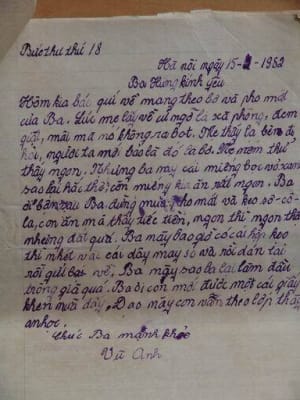 Bức thư thứ 18
Hà nội ngày 15-2-1982
Ba Hưng kính yêu
Hôm kia bác gửi về mang theo bơ và pho mát
của Ba. Lúc mẹ lấy về cứ ngỡ là xà phòng, đem
giặt, mãi mà nó không ra bọt. Mẹ thấy lạ bèn đi
hỏi, người ta mới bảo là đó là bơ. Mẹ nếm thử
thấy ngon. Nhưng ba mấy cái miếng bọc vỏ xanh
sao lại hắc thế, còn miếng kia ăn rất ngon. Ba
ơi lần sau Ba đừng mua pho mát và kẹo sô-cô-
la, con ăn mà thấy tiếc tiền, ngon thì ngon thật
nhưng đắt quá. Ba mấy bao giờ có cái hộp kẹo
thì nhét vài cái dây may so và rồi dán lại
rồi gửi bọc về, Ba mấy sao la lại lắm dầu
trông giả quá. Ba ơi con mới được một cái giấy
khen nữa đấy. Dạo mấy con vẫn theo lớp thầy
an học.
Chúc Ba mạnh khỏe
Vũ Anh